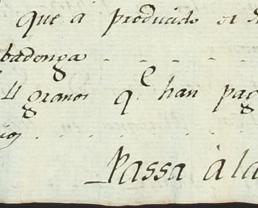 que á producido el
badenga
4 granos q.e han pag
Passa á la